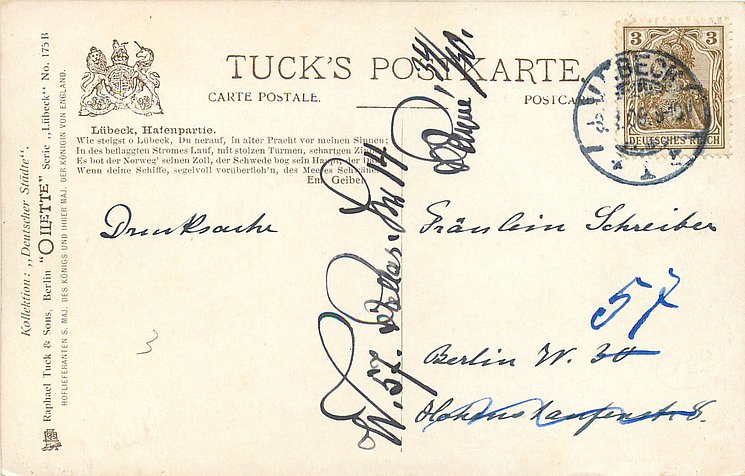 TUCK'S POSTKARTE.
CARTE POSTALE.
POSTCARD
3 3
DEUTSCHES REICH
LÜBECK
Lübeck, Hafenpartie.
Wie steigst o Lübeck, Du herauf, in alter Pracht vor meinen Sinnen;
In des beflaggten Stromes Lauf, mit stolzen Türmen, schartgen Zinnen
Es bot der Norweg' seinen Zoll, der Schwede bog sein Haupt, der Däne
Wenn deine Schiffe, segelvoll vorüberfloh'n, des Meeres Schwäne.
Em. Geibel
Kollektion: „Deutscher Städte".
Raphael Tuck & Sons, Berlin "OILETTE" Serie „Lübeck" No. 175 B
HOFLIEFERANTEN S. MAJ. DES KÖNIGS UND IHRER MAJ. DER KÖNIGIN VON ENGLAND.
Drucksache
Fräulein Schreiber
57
Berlin W. 30
Hohenstaufenstr 8.
W. 57.
3